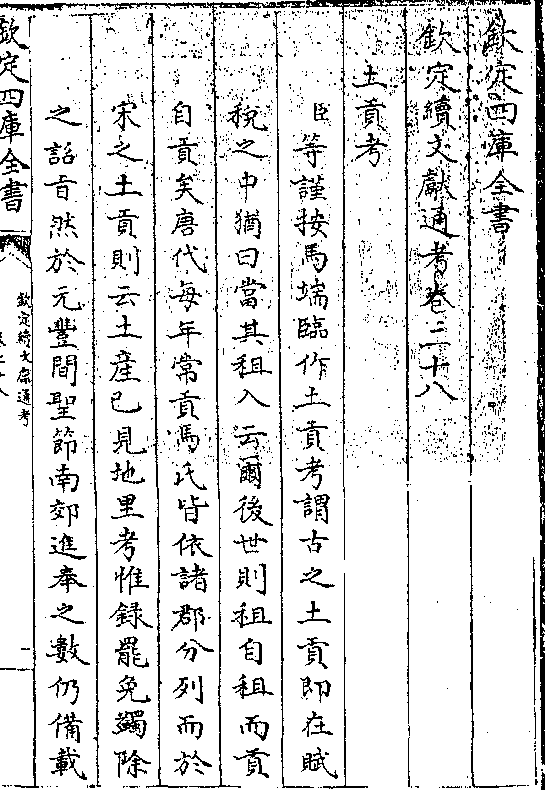 欽定四庫全書
欽定續文獻通考卷二十八
土貢考
臣等謹按馬端臨作土貢考謂古之土貢即在賦
稅之中猶曰當其租入云爾後世則租自租而貢
自貢矣唐代每年常貢馬氏皆依諸郡分列而於
宋之土貢則云土產已見地里考惟録罷免蠲除
之詔旨然於元豐間聖節南郊進奉之數仍備載
欽定四庫全書
欽定續文獻通考
卷二十八
一